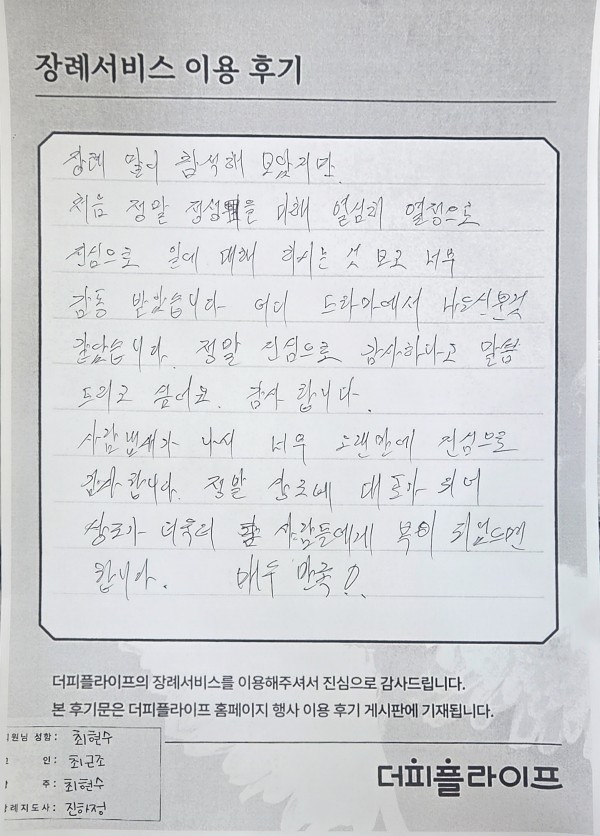 장례서비스 이용 후기
장례 많이 참석해 보았지만
처음 정말 정성을 다해 열심히 열정으로
진심으로 일에 대해 하시는 것 보고 너무
감동 받았습니다 어디 드라마에서 나오신분것
같았습니다. 정말 진심으로 감사하다고 말씀
드리고 싶어요. 감사 합니다.
사람냄새가 나서 너무 오랜만에 진심으로
감사 합니다. 정말 상조에 대표가 되어
상조가 더욱더 사람들에게 복이 되었으면
합니다. 매우 만족
더피플라이프의 장례서비스를 이용해주셔서 진심으로 감사드립니다.
본 후기문은 더피플라이프 홈페이지 행사 이용 후기 게시판에 기재됩니다.
원님 성함 : 최현수
인 : 최근조
주 : 최현수
례지도사 : 진하정
더피플라이프